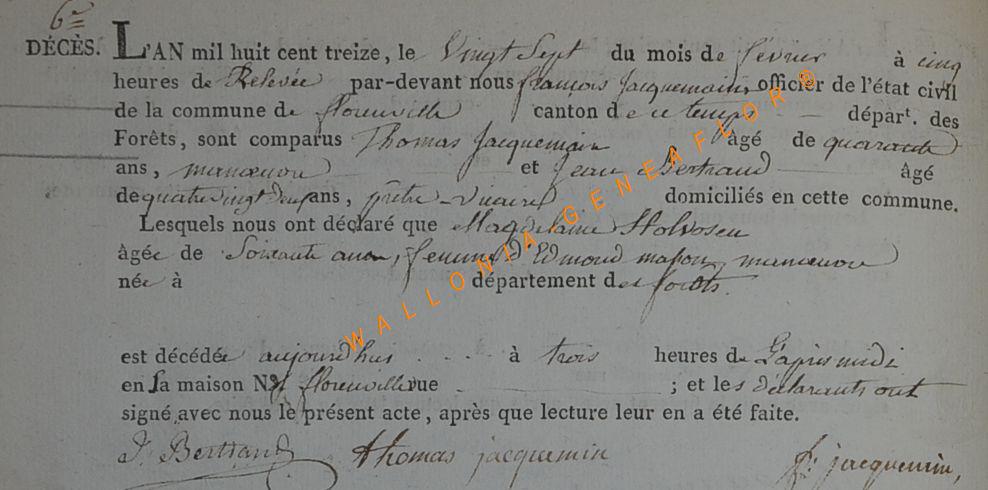 6e
DÉCÈS. L'AN mil huit cent treize, le Vingt Sept du mois de fevrier à cinq
heures de Relevée par-devant nous francois Jacquemain, officier de l'état civil
de la commune de florenville canton de ce temps départ. des
Forêts, sont comparus Thomas Jacquemain âgé de quarante
ans, manœuvre et Jean Bertrand âgé
de quatre vingt deux ans, prêtre-vicaire domiciliés en cette commune.
Lesquels nous ont déclaré que Magdelaine
âgée de Soixante ans, femme d'Edmond mason, manœuvre
née à département des forêts.
est décédée aujourdhui à trois heures de L'après midi
en sa maison N florenville rue ; et les déclarants ont
signé avec nous le présent acte, après que lecture leur en a été faite.
J. Bertrand thomas jacquemin f: jacquemin,
WALLONIA GENEAFLOR ®